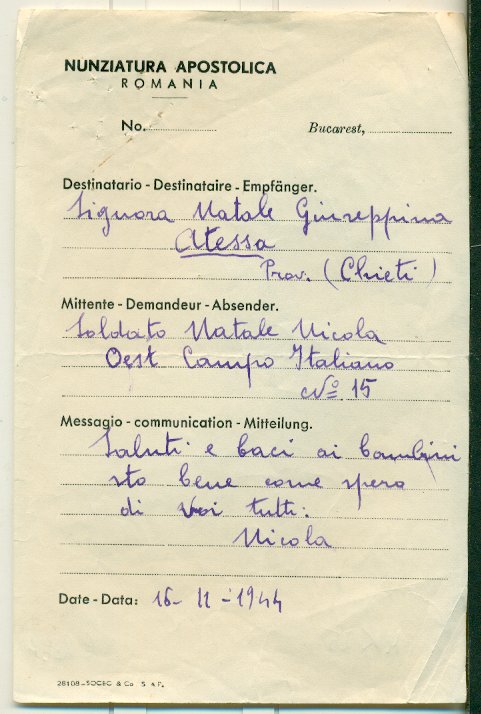 NUNZIATURA APOSTOLICA
ROMANIA
No.
Bucarest,
Destinatario - Destinataire - Empfänger.
Signora Natale Giuseppina
Atessa
Prov. (Chieti)
Mittente - Demandeur - Absender.
Soldato Natale Nicola
Oest Campo Italiano
No 15
Messagio - communication - Mitteilung.
Saluti e baci ai bambini
sto bene come spero
di voi tutti.
Nicola
Date - Data: 16-11-1944
28108-SOCEC & Co. S. A. R.